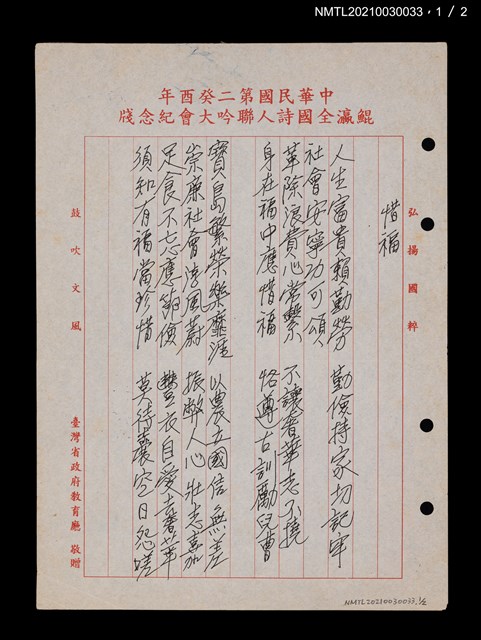 NMTL20210030033，1/2
中華民國第二癸酉年
鯤瀛全國詩人聯吟大會紀念牋
弘揚國粹
惜福
人生富貴賴勤勞 勤儉持家切記牢
社會安寧功可頌
革除浪費心常繫 不讓奢華志不撓
身在福中應惜福 恪遵古訓勵兒曹
寶島繁榮樂靡涯 以農立國信無差
崇廉社會淳風蔚 振弊人心壯志嘉
足食不忘應節儉 豐衣自愛去奢華
須知有福當珍惜 莫待囊空日怨嗟
鼓吹文風
臺灣省政府教育廳 敬贈
NMTL20210030033.1/2